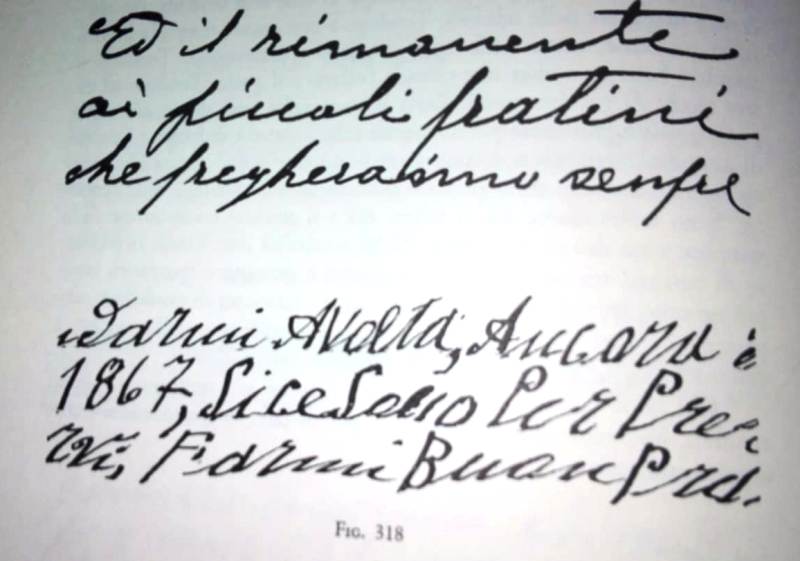 Ed il rimanente
ai piccoli fratini
che fregheranno senpre
Darmi Avolta, Ancora
1867, Per Pre
Farmi Buon Pra.
FIG. 318